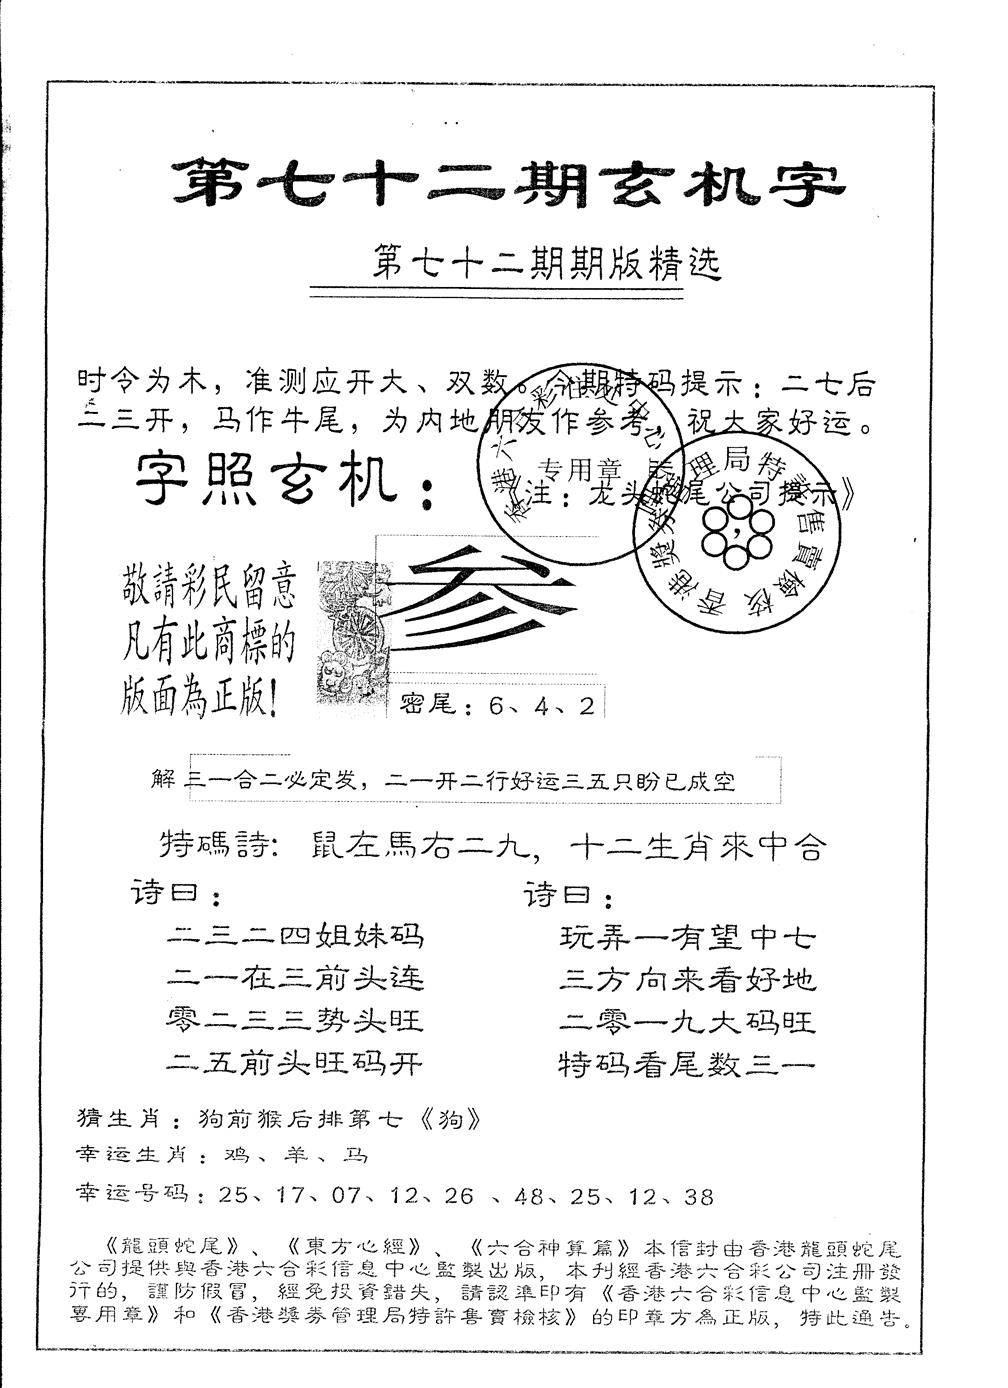 第七十二期玄机字
第七十二期期版精选
时令为木，准测应开大、双数。今期特码提示：二七后
二三开，马作牛尾，为内地朋友作参考，祝大家好运。
字照玄机：
《注：龙头蛇尾公司提示》
专用章
香港六合彩信息中心
香港獎券管理局特許售賣檢核
敬請彩民留意
凡有此商標的
版面為正版！
参
密尾：6、4、2
解 三一合二必定发，二一开二行好运三五只盼已成空
特碼詩：鼠左馬右二九，十二生肖來中合
诗曰：
二三二四姐妹码
二一在三前头连
零二三三势头旺
二五前头旺码开
诗曰：
玩弄一有望中七
三方向来看好地
二零一九大码旺
特码看尾数三一
猜生肖：狗前猴后排第七《狗》
幸运生肖：鸡、羊、马
幸运号码：25、17、07、12、26 、48、25、12、38
《龍頭蛇尾》、《東方心經》、《六合神算篇》本信封由香港龍頭蛇尾
公司提供與香港六合彩信息中心監製出版，本刊經香港六合彩公司注冊發
行的，謹防假冒，經免投資錯失，請認準印有《香港六合彩信息中心監製
專用章》和《香港獎券管理局特許售賣檢核》的印章方為正版，特此通告。